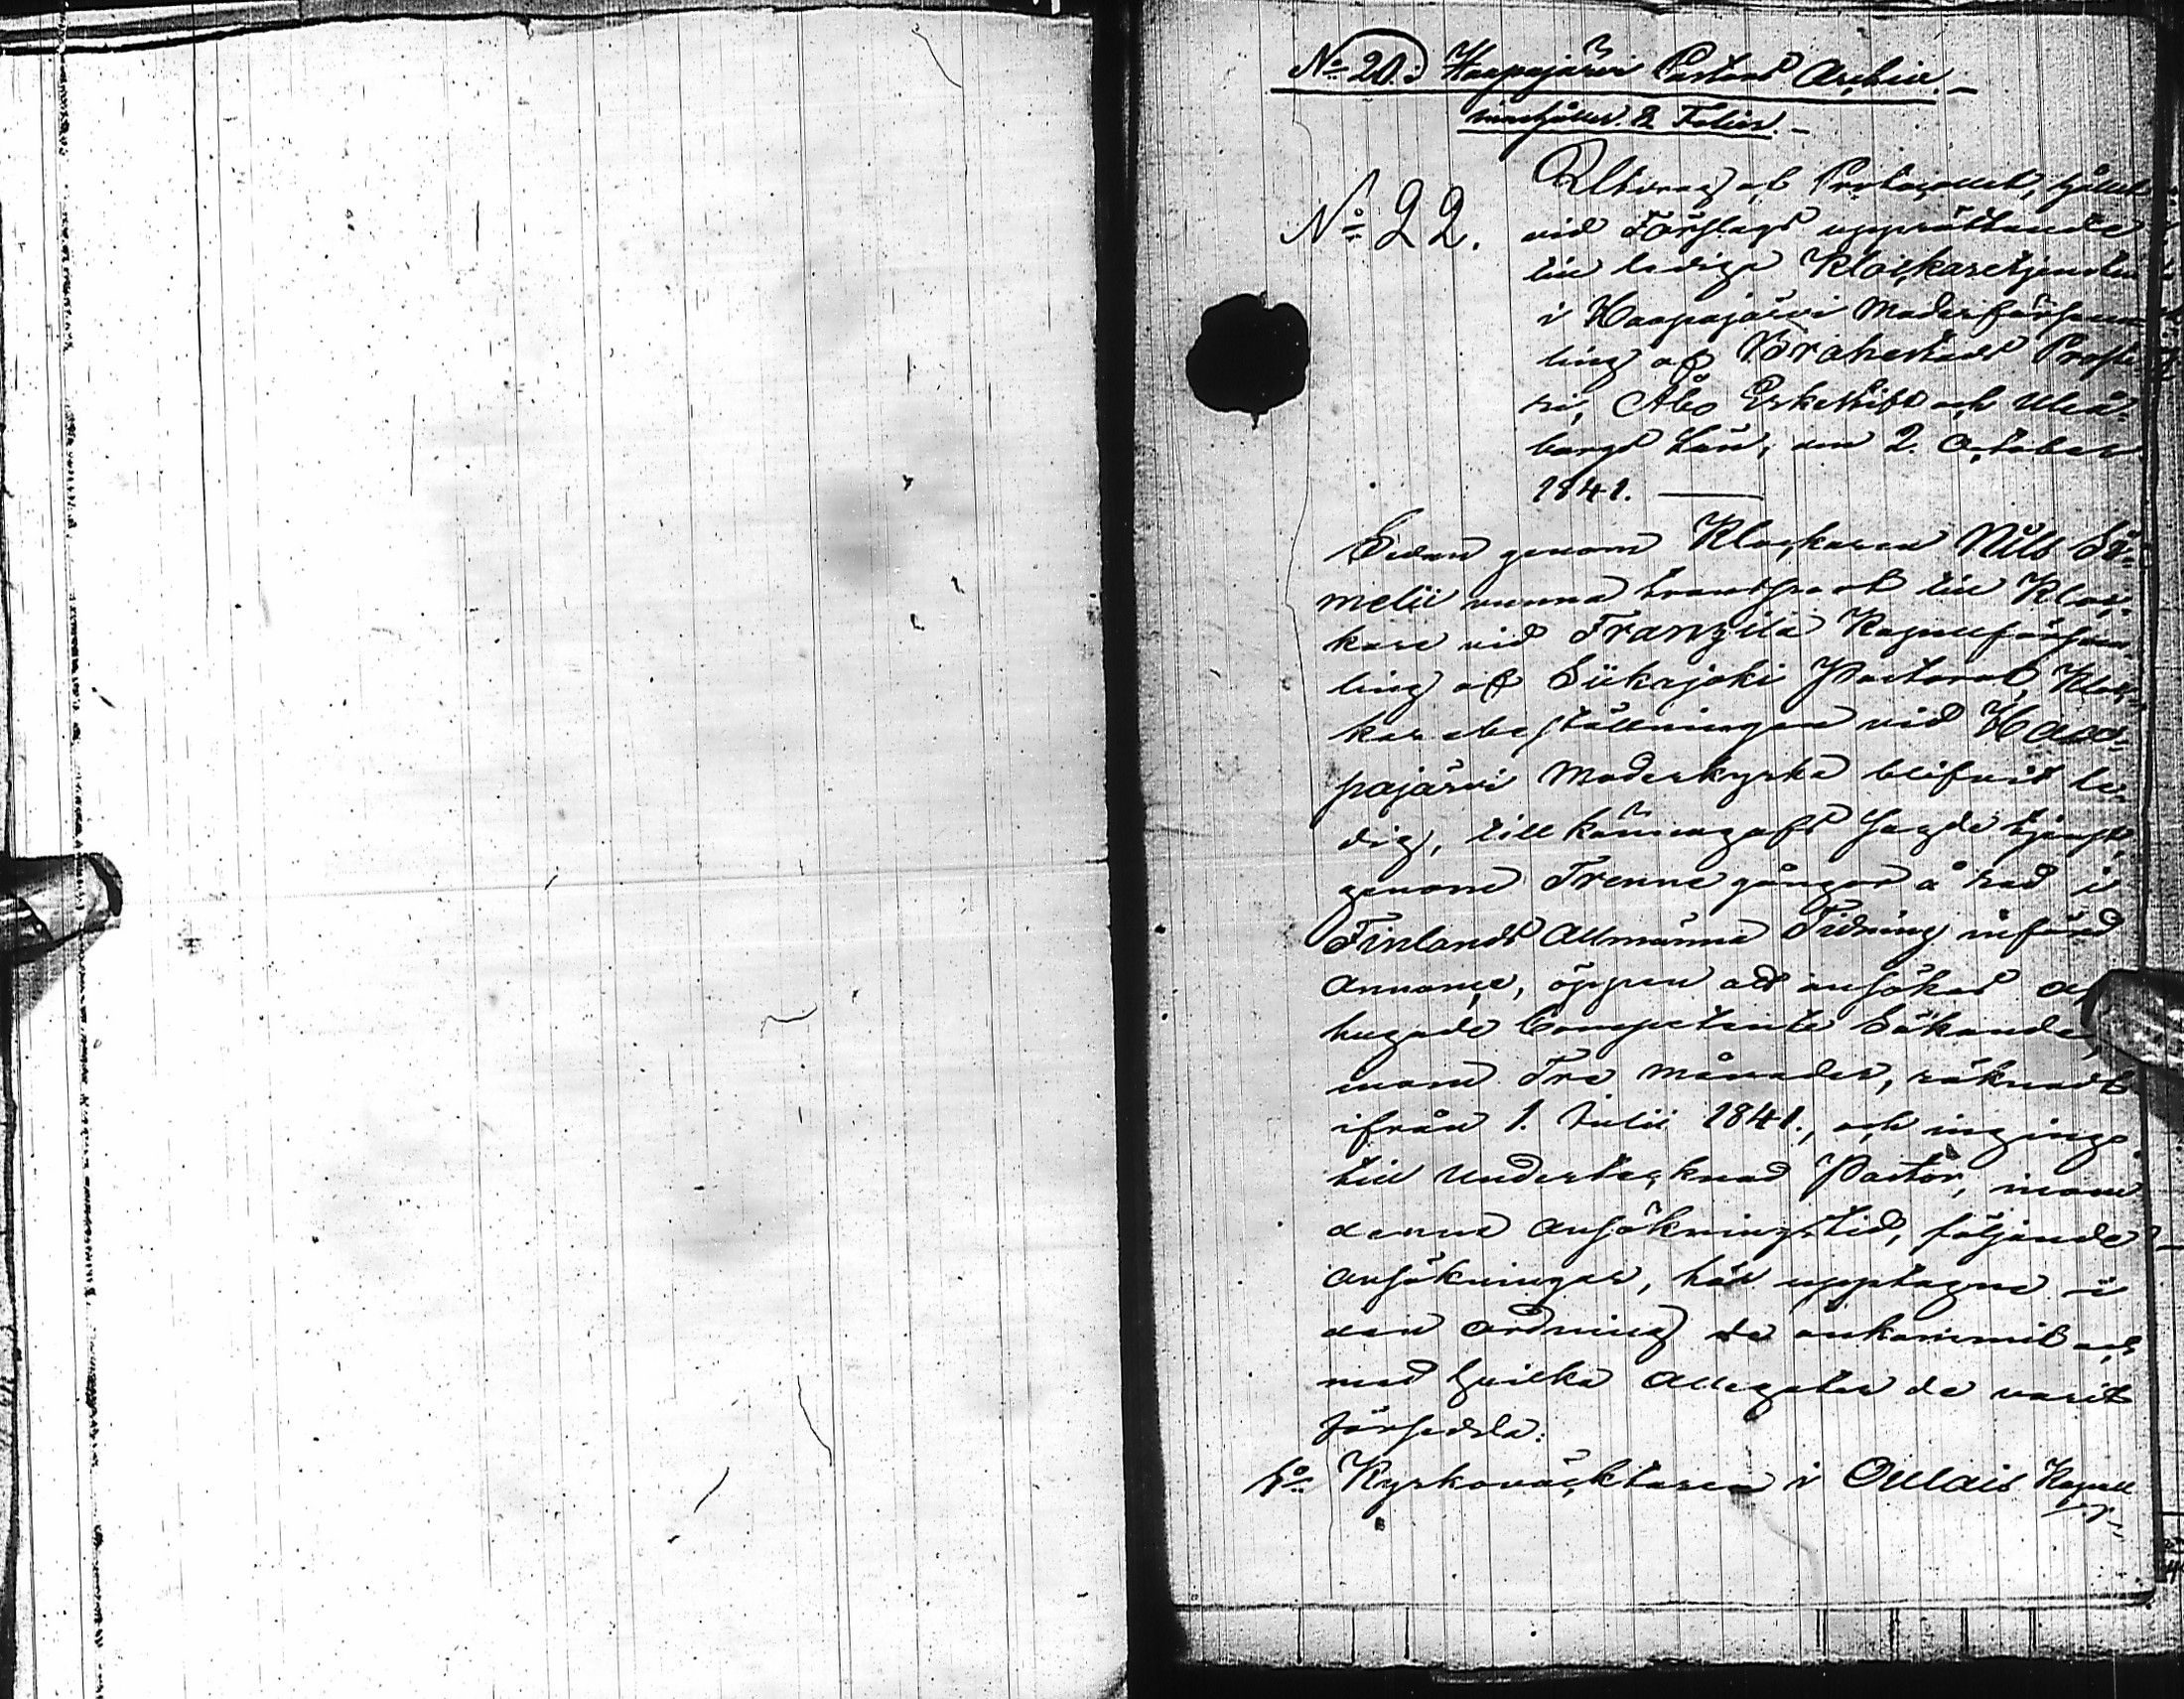 No 20. i Haapajärvi Pastors Archiv.
innehåller 2 Folier.
No 22.
Utdrag af Protocollet, hållet
vid Förslags upprättande
till lediga Klockaretjensten
i Haapajärvi Moderförsam
ling af Brahestads Proste
ri, Åbo Erkestift och Uleå-
borgs Län, den 2. October
1841.
Sedan genom Klockaren Nils
melii vunna transport till Kloc-
kare vid Frantzila Kapellförsam-
ling af Siikajoki Pastorat, Kloc-
karebeställningen vid Haa-
pajärvi Moderkyrka blifvit le-
dig, tillkännagafs sagde tjenst,
genom Trenne gångor å rad i
Finlands Allmänna Tidning införd
annonce, öppen att ansökas af
hugade Competente Sökande,
inom Tre månader, räknadt
ifrån 1. Julii 1841., och ingingo
till Undertecknad Pastor, inom
denna ansökningstid, följande
ansökningar, här upptagne i
den ordning de ankommit och
med hvilka allegater de varit
försedda:
1o Kyrkoväcktaren i Oulais Kapell